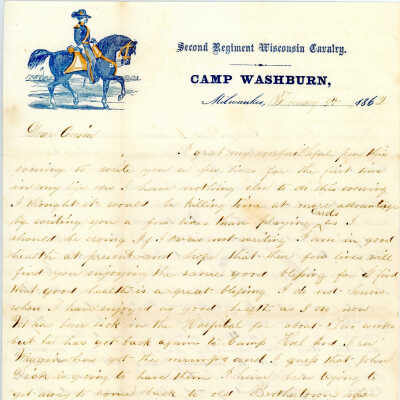 Second Regiment Wisconsin Cavalry.
CAMP WASHBURN,
Milwaukee, 186
Dear Cousin
I grat my
evening to write you a few lines for the first time
in my life as I have nothing else to do this evening
I thought it would be killing time at more advantage
by writing you a few lines than playing Cards as I
should be doing if I was not writing I am in good
health at present and hope that these few lines will
find you enjoying the same good blessing for I find
that good health is a great blessing I do not know
when I have enjoyed as good health as I do now
has been sick in the Hospital for about two weeks
but he has got back again to Camp
has got the mumps and I guess that John
Dick is going to have them I have been trying to
get away to come back to old Brothertown